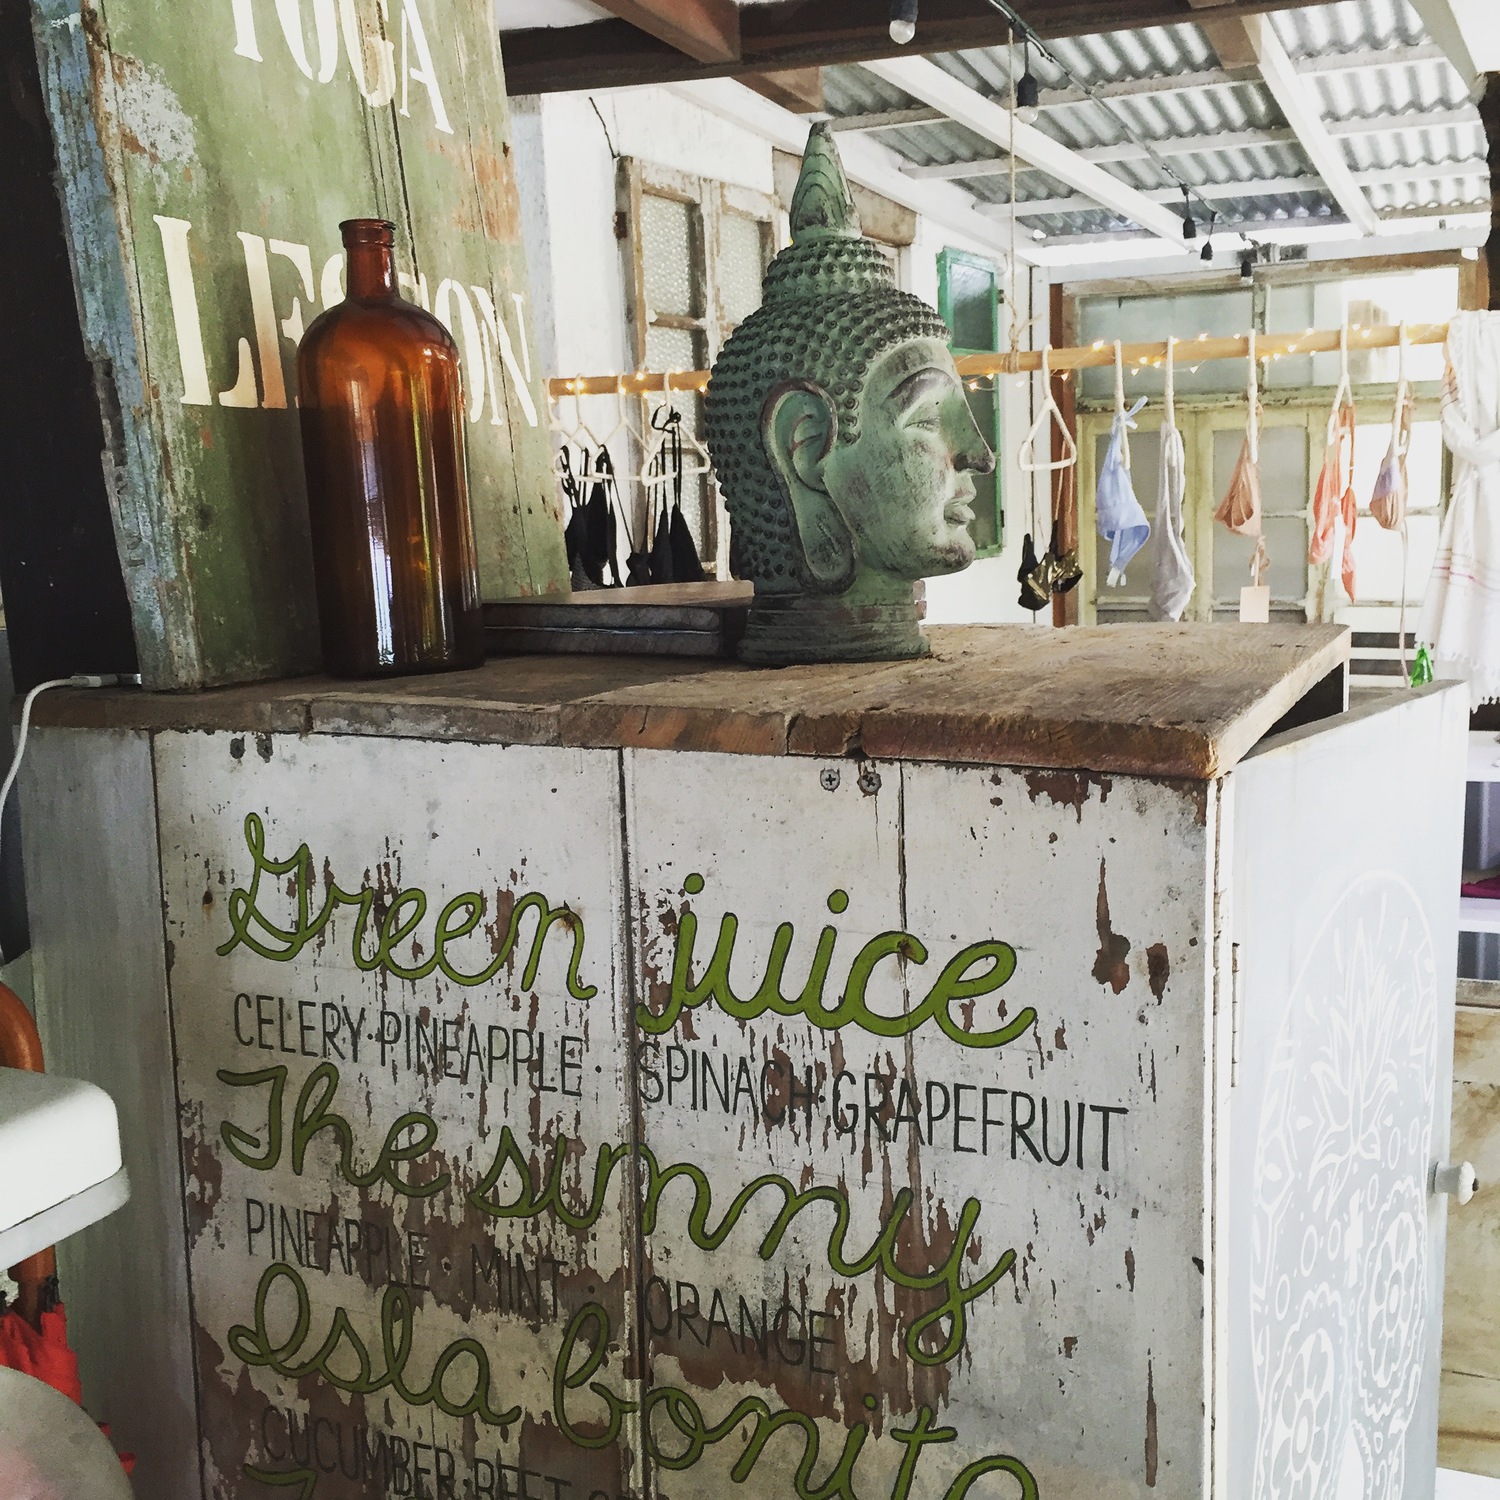 YOGA
LESSON
Green juice
CELERY·PINEAPPLE· SPINACH·GRAPEFRUIT
The sunny
PINEAPPLE· MINT· ORANGE
Isla bonita
CUCUMBER·BEET